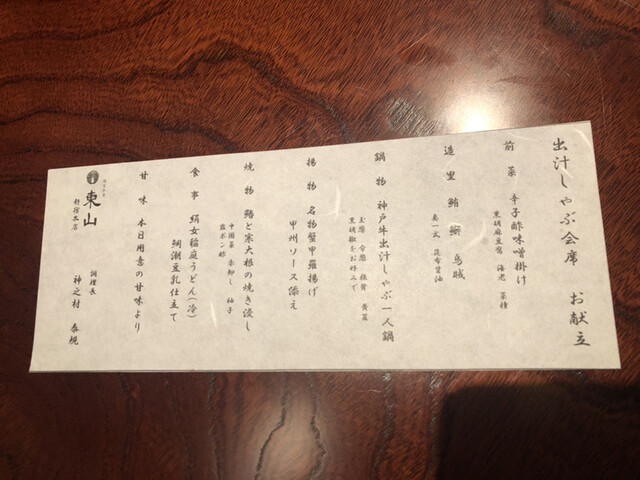 出汁しゃぶ会席 お献立
前菜 辛子酢味噌掛け
黒胡麻豆腐 海老 菜種
造里 鮪 鰤 烏賊
妻一式 昆布醤油
鍋物 神戸牛出汁しゃぶ一人鍋
玉葱 令葱 椎茸 黄韮
黒胡椒をお好みで
揚物 名物蟹甲羅揚げ
甲州ソース添え
焼物 鰆と寒大根の焼き浸し
中国菜 卸し 柚子
塩ポン酢
食事 絹女稲庭うどん(冷)
鯛潮豆乳仕立て
甘味 本日用意の甘味より
東山
新宿本店
調理長
神之村 泰規